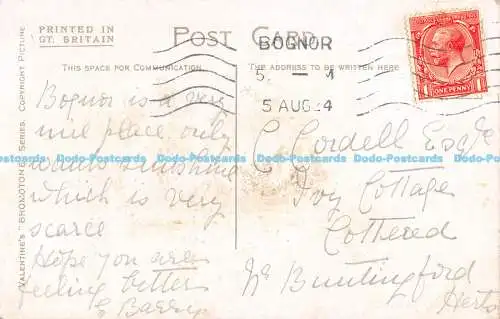 PRINTED IN
GT. BRITAIN
POST CARD
THIS SPACE FOR COMMUNICATION.
THE ADDRESS TO BE WRITTEN HERE
BOGNOR
5 AUG 24
ONE PENNY
VALENTINE'S "BROMOTONE" SERIES. COPYRIGHT PICTURE
Bognor is a very
nice place, only
wants sunshine
which is very
scarce
Hope you are
feeling better
C Cordell Esqre
Ivy Cottage
Cottered
Nr Buntingford
Herts
Dodo-Postcards Dodo-Postcards Dodo-Postcards Dodo-Postcards Dodo-Postcards Dodo-Postcards